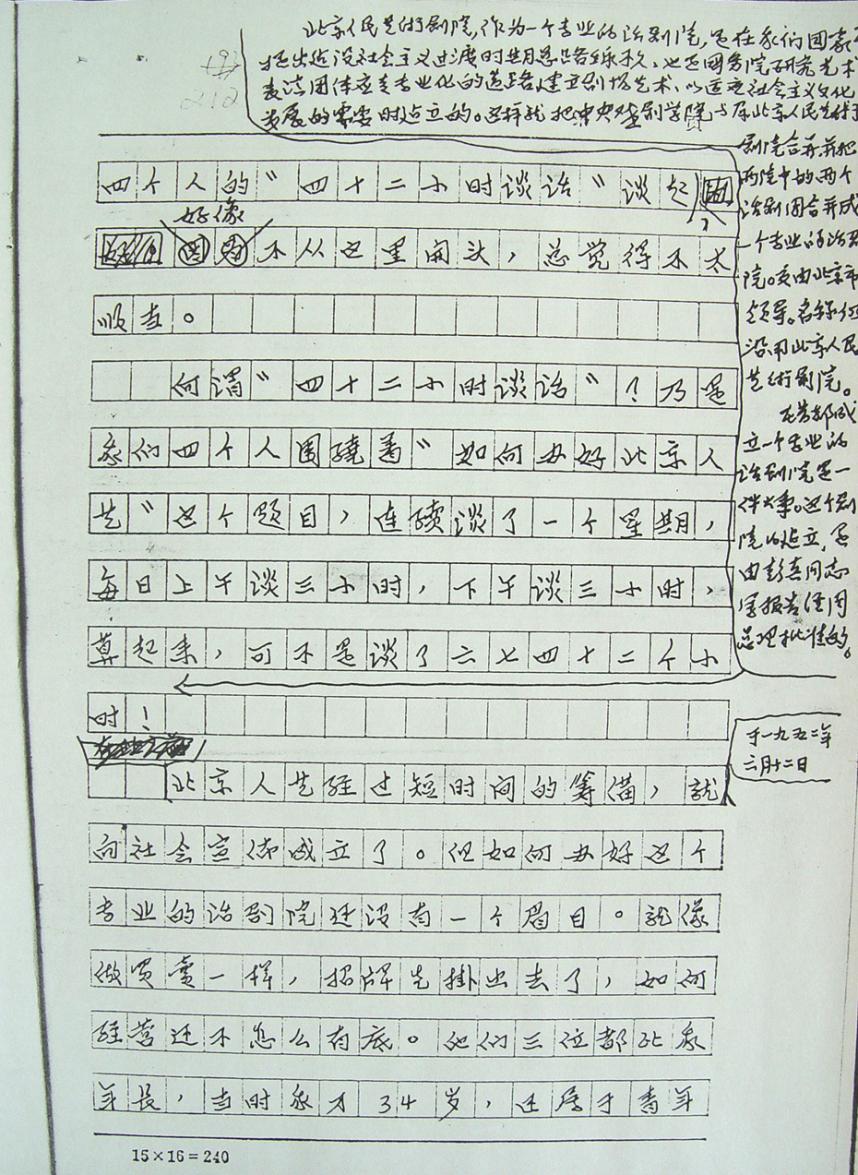 北京人民艺术剧院，作为一个专业的话剧院，是在我们国家
提出建设社会主义过渡时期总路线不久，也是国务院研究艺术
表演团体应走专业化的道路建立剧场艺术，以适应社会主义文化
发展的需要时建立的。这样就把中央戏剧学院与原北京人民艺术
剧院合并并把
两院中的两个
话剧团合并成
一个专业的话剧
院。改由北京市
领导。名称仍
沿用北京人民
艺术剧院。
在首都成
立一个专业的
话剧院是一
件大事。这个剧
院的建立，是
由彭真同志
写报告经周
总理批准的。
212
四个人的“四十二小时谈话”谈起，
好像
不从这里开头，总觉得不太
顺当。
何谓“四十二小时谈话”？乃是
我们四个人围绕着“如何办好北京人
艺”这个题目，连续谈了一个星期，
每日上午谈三小时，下午谈三小时，
算起来，可不是谈了六七四十二个小
时！
于一九五二年
六月十二日
北京人艺经过短时间的筹备，就
向社会宣布成立了。但如何办好这个
专业的话剧院还没有一个眉目。就像
做买卖一样，招牌先掛出去了，如何
经营还不怎么有底。他们三位都比我
年长，当时我才34岁，还属于青年
15×16=240